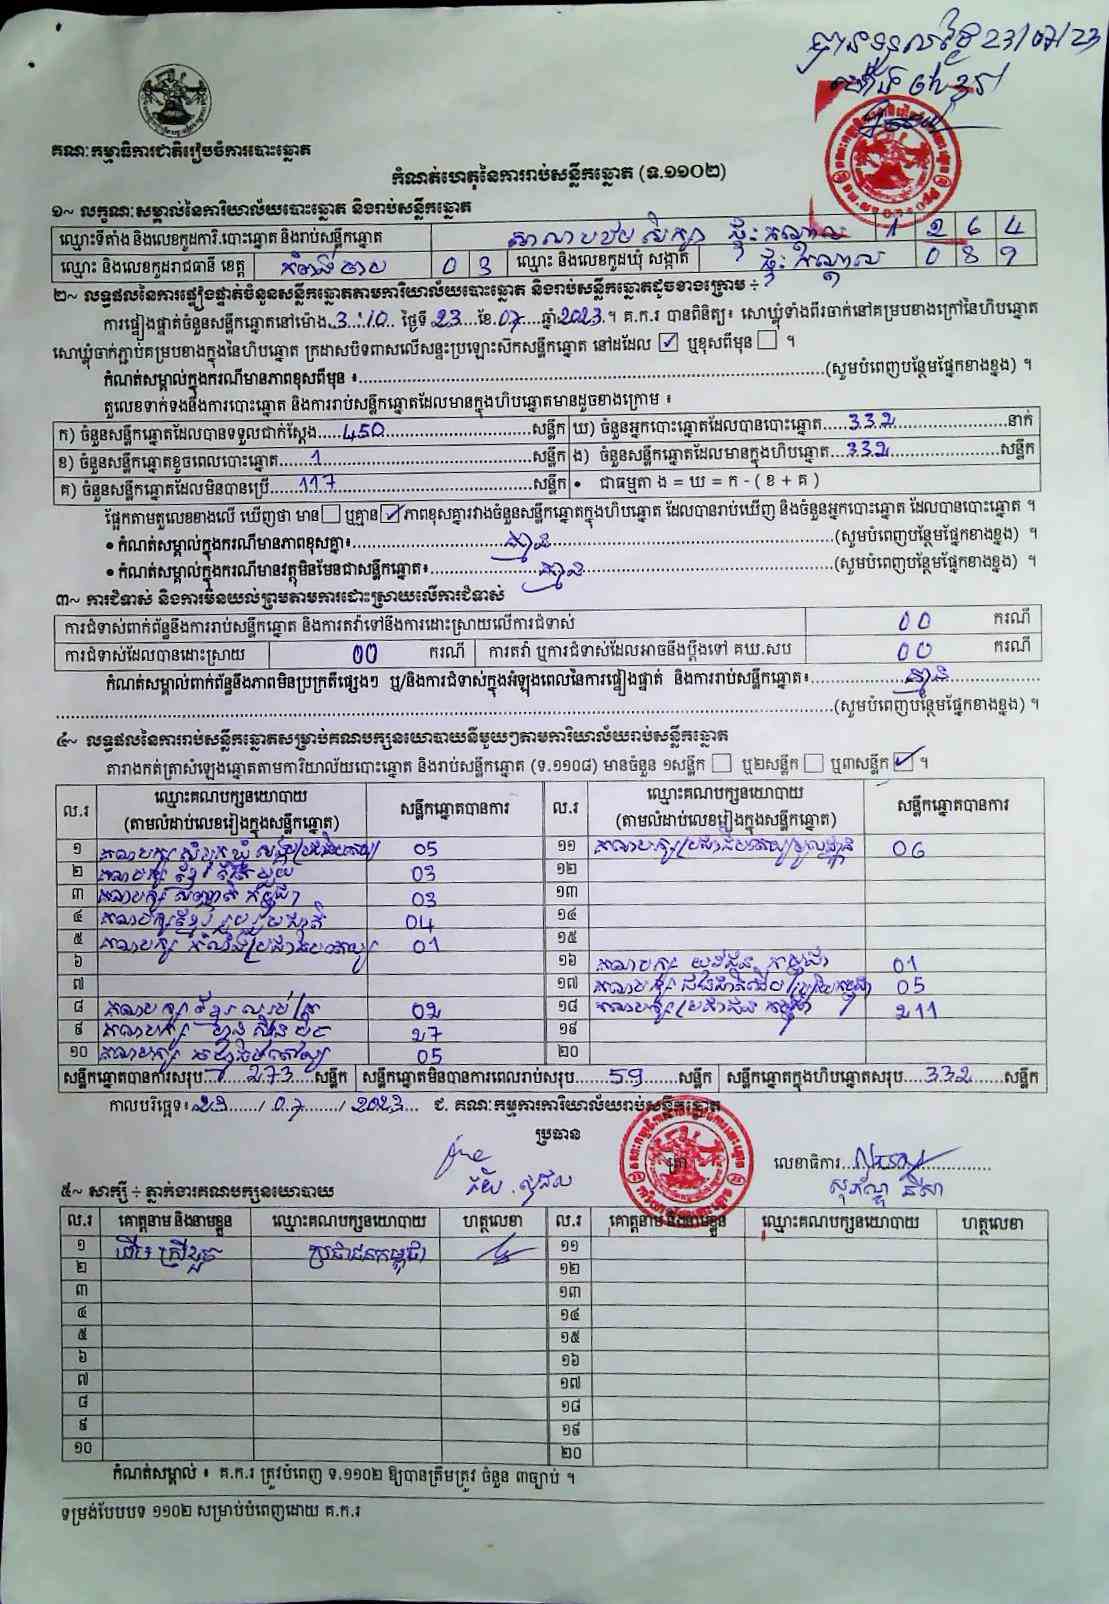 បានទទួលថ្ងៃ 23/07/23
គណៈកម្មាធិការជាតិរៀបចំការបោះឆ្នោត
កំណត់ហេតុនៃការរាប់សន្លឹកឆ្នោត (ទ.១១០២)
១~ លក្ខណៈសម្គាល់នៃការិយាល័យបោះឆ្នោត និងរាប់សន្លឹកឆ្នោត
ឈ្មោះទីតាំង និងលេខកូដការិ.បោះឆ្នោត និងរាប់សន្លឹកឆ្នោត សាលាបឋមសិក្សា ផ្ទះកណ្តាល 1 2 6 4
ឈ្មោះ និងលេខកូដរាជធានី ខេត្ត កំពង់ចាម 0 3 ឈ្មោះ និងលេខកូដឃុំ សង្កាត់ ផ្ទះកណ្តាល 0 8 9
២~ លទ្ធផលនៃការផ្ទៀងផ្ទាត់ចំនួនសន្លឹកឆ្នោតតាមការិយាល័យបោះឆ្នោត និងរាប់សន្លឹកឆ្នោតដូចខាងក្រោម ÷
ការផ្ទៀងផ្ទាត់ចំនួនសន្លឹកឆ្នោតនៅម៉ោង 3:10 ថ្ងៃទី 23 ខែ 07 ឆ្នាំ 2023 ។ គ.ក.រ បានពិនិត្យ៖ សោឃ្លុំទាំងពីរចាក់នៅគម្របខាងក្រៅនៃហិបឆ្នោត
សោឃ្លុំចាក់ភ្ជាប់គម្របខាងក្នុងនៃហិបឆ្នោត ក្រដាសបិទពាសលើសន្ទះប្រឡោះស៊កសន្លឹកឆ្នោត នៅដដែល ☑ ឬខុសពីមុន ☐ ។
កំណត់សម្គាល់ក្នុងករណីមានភាពខុសពីមុន ៖ (សូមបំពេញបន្ថែមផ្នែកខាងខ្នង) ។
តួលេខទាក់ទងនឹងការបោះឆ្នោត និងការរាប់សន្លឹកឆ្នោតដែលមានក្នុងហិបឆ្នោតមានដូចខាងក្រោម ៖
ក) ចំនួនសន្លឹកឆ្នោតដែលបានទទួលជាក់ស្តែង 450 សន្លឹក ឃ) ចំនួនអ្នកបោះឆ្នោតដែលបានបោះឆ្នោត 332 នាក់
ខ) ចំនួនសន្លឹកឆ្នោតខូចពេលបោះឆ្នោត 1 សន្លឹក ង) ចំនួនសន្លឹកឆ្នោតដែលមានក្នុងហិបឆ្នោត 332 សន្លឹក
គ) ចំនួនសន្លឹកឆ្នោតដែលមិនបានប្រើ 117 សន្លឹក • ជាធម្មតា ង = ឃ = ក - ( ខ + គ )
ផ្អែកតាមតួលេខខាងលើ ឃើញថា មាន ☐ ឬគ្មាន ☑ ភាពខុសគ្នារវាងចំនួនសន្លឹកឆ្នោតក្នុងហិបឆ្នោត ដែលបានរាប់ឃើញ និងចំនួនអ្នកបោះឆ្នោត ដែលបានបោះឆ្នោត ។
• កំណត់សម្គាល់ក្នុងករណីមានភាពខុសគ្នា៖ គ្មាន (សូមបំពេញបន្ថែមផ្នែកខាងខ្នង) ។
• កំណត់សម្គាល់ក្នុងករណីមានវត្ថុមិនមែនជាសន្លឹកឆ្នោត៖ គ្មាន (សូមបំពេញបន្ថែមផ្នែកខាងខ្នង) ។
៣~ ការជំទាស់ និងការមិនយល់ព្រមតាមការដោះស្រាយលើការជំទាស់
ការជំទាស់ពាក់ព័ន្ធនឹងការរាប់សន្លឹកឆ្នោត និងការតវ៉ាទៅនឹងការដោះស្រាយលើការជំទាស់ 00 ករណី
ការជំទាស់ដែលបានដោះស្រាយ 00 ករណី ការតវ៉ា ឬការជំទាស់ដែលអាចនឹងប្តឹងទៅ គឃ.សប 00 ករណី
កំណត់សម្គាល់ពាក់ព័ន្ធនឹងភាពមិនប្រក្រតីផ្សេងៗ ឬ/និងការជំទាស់ក្នុងអំឡុងពេលនៃការផ្ទៀងផ្ទាត់ និងការរាប់សន្លឹកឆ្នោត៖ គ្មាន
(សូមបំពេញបន្ថែមផ្នែកខាងខ្នង) ។
៤~ លទ្ធផលនៃការរាប់សន្លឹកឆ្នោតសម្រាប់គណបក្សនយោបាយនីមួយៗតាមការិយាល័យរាប់សន្លឹកឆ្នោត
តារាងកត់ត្រាសំឡេងឆ្នោតតាមការិយាល័យបោះឆ្នោត និងរាប់សន្លឹកឆ្នោត (ទ.១១០៨) មានចំនួន ១សន្លឹក ☐ ឬ២សន្លឹក ☐ ឬ៣សន្លឹក ☑ ។
ល.រ ឈ្មោះគណបក្សនយោបាយ (តាមលំដាប់លេខរៀងក្នុងសន្លឹកឆ្នោត) សន្លឹកឆ្នោតបានការ ល.រ ឈ្មោះគណបក្សនយោបាយ (តាមលំដាប់លេខរៀងក្នុងសន្លឹកឆ្នោត) សន្លឹកឆ្នោតបានការ
១ គណបក្ស សំបុកឃ្មុំសង្គមប្រជាធិបតេយ្យ 05 ១១ គណបក្សប្រជាធិបតេយ្យមូលដ្ឋាន 06
២ គណបក្ស ខ្មែរតែមួយ 03 ១២
៣ គណបក្ស សញ្ជាតិកម្ពុជា 03 ១៣
៤ គណបក្សខ្មែររួបរួមជាតិ 04 ១៤
៥ គណបក្ស កម្លាំងប្រជាធិបតេយ្យ 01 ១៥
៦ ១៦ គណបក្ស យុវជនកម្ពុជា 01
៧ ១៧ គណបក្ស ជនជាតិដើមប្រជាធិបតេយ្យកម្ពុជា 05
៨ គណបក្ស ខ្មែរឈប់ក្រ 02 ១៨ គណបក្សប្រជាជនកម្ពុជា 211
៩ គណបក្ស ហ្វ៊ុនស៊ិនប៉ិច 27 ១៩
១០ គណបក្ស ធម្មាធិបតេយ្យ 05 ២០
សន្លឹកឆ្នោតបានការសរុប 273 សន្លឹក សន្លឹកឆ្នោតមិនបានការពេលរាប់សរុប 59 សន្លឹក សន្លឹកឆ្នោតក្នុងហិបឆ្នោតសរុប 332 សន្លឹក
កាលបរិច្ឆេទ៖ 23 / 07 / 2023 ជ. គណៈកម្មការការិយាល័យរាប់សន្លឹកឆ្នោត
ប្រធាន
លេខាធិការ
៥~ សាក្សី ÷ ភ្នាក់ងារគណបក្សនយោបាយ
ល.រ គោត្តនាម និងនាមខ្លួន ឈ្មោះគណបក្សនយោបាយ ហត្ថលេខា ល.រ គោត្តនាម និងនាមខ្លួន ឈ្មោះគណបក្សនយោបាយ ហត្ថលេខា
១ ប្រជាជនកម្ពុជា ១១
២ ១២
៣ ១៣
៤ ១៤
៥ ១៥
៦ ១៦
៧ ១៧
៨ ១៨
៩ ១៩
១០ ២០
កំណត់សម្គាល់ ៖ គ.ក.រ ត្រូវបំពេញ ទ.១១០២ ឱ្យបានត្រឹមត្រូវ ចំនួន ៣ច្បាប់ ។
ទម្រង់បែបបទ ១១០២ សម្រាប់បំពេញដោយ គ.ក.រ